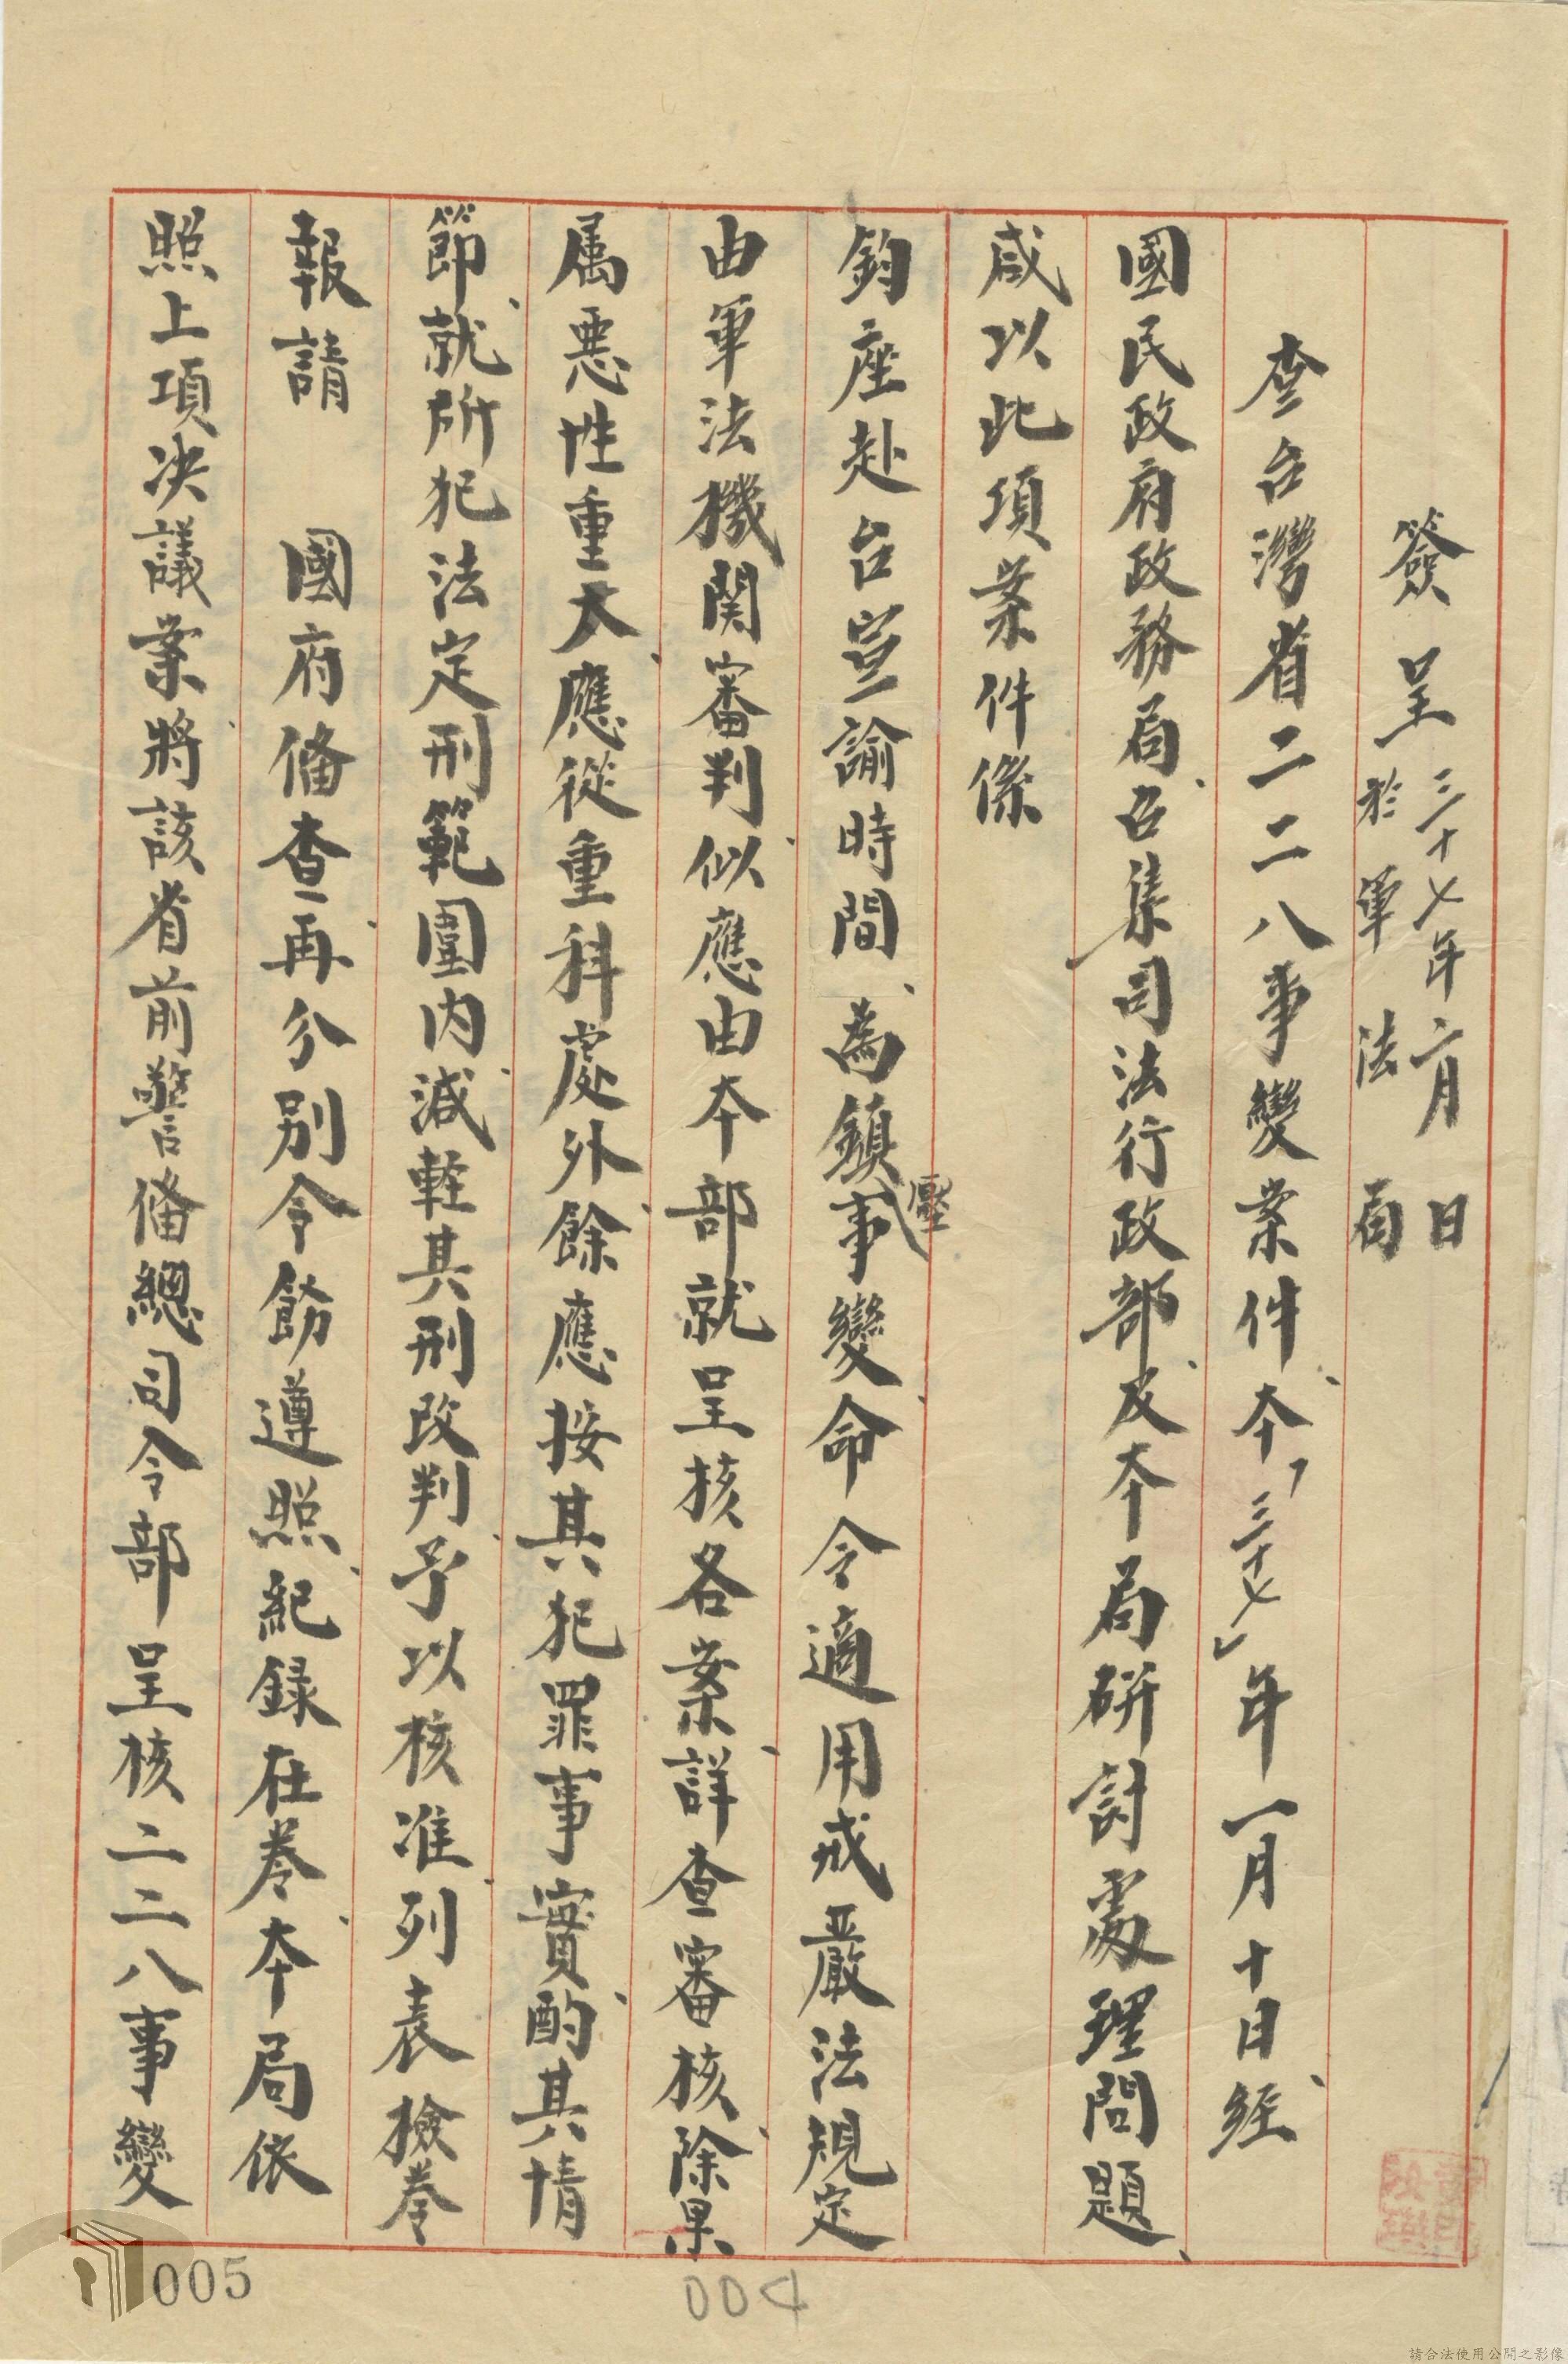 簽呈 三十七年六月 日
於軍法局
查台灣省二二八事變案件、本「三十七」年一月十日、經
國民政府政務局、召集司法行政部、及本局研討處理問題、
咸以此項案件係
鈞座赴台宣諭時間、為鎮壓事變、命令適用戒嚴法規定
由軍法機関審判、似應由本部就呈核各案、詳查審核、除果
属惡性重大、應從重科處外、餘應按其犯罪事實、酌其情
節、就所犯法定刑範圍內、減輕其刑、改判予以核准、列表檢卷
報請 國府備查、再分別令飭遵照、紀錄在卷、本局依
照上項决議案、將該省前警備總司令部呈核二二八事變
005
004
請合法使用公開之影像